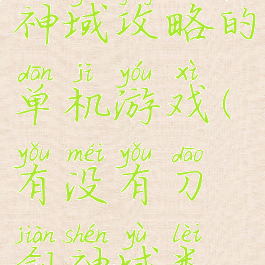 神域攻略的
dān jī yóu xì
单机游戏(
yǒu méi yǒu dāo
有没有刀
jiàn shén yù lèi
剑神域类